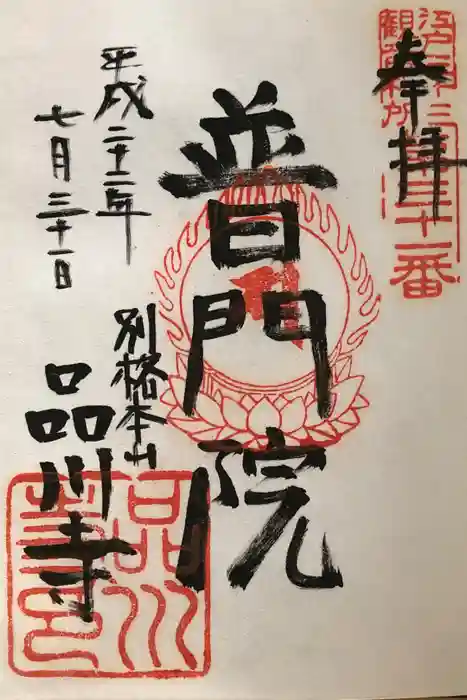 江戸三十三
観音札所
第三十一番
奉拝
普門院
平成二十二年
七月三十一日
別格本山
品川寺
品川
寺印